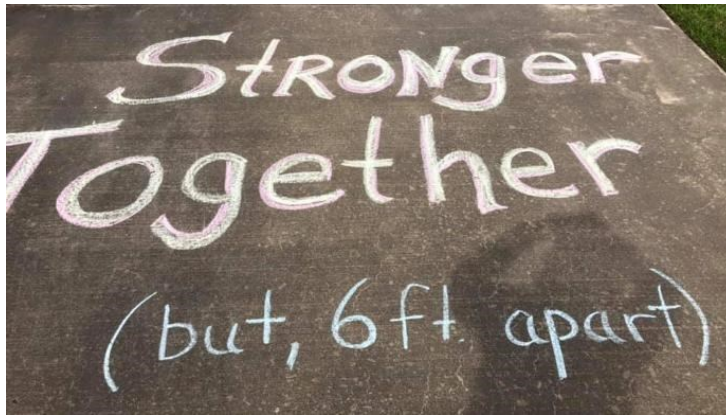 StRONger
Together
(but, 6ft. apart)